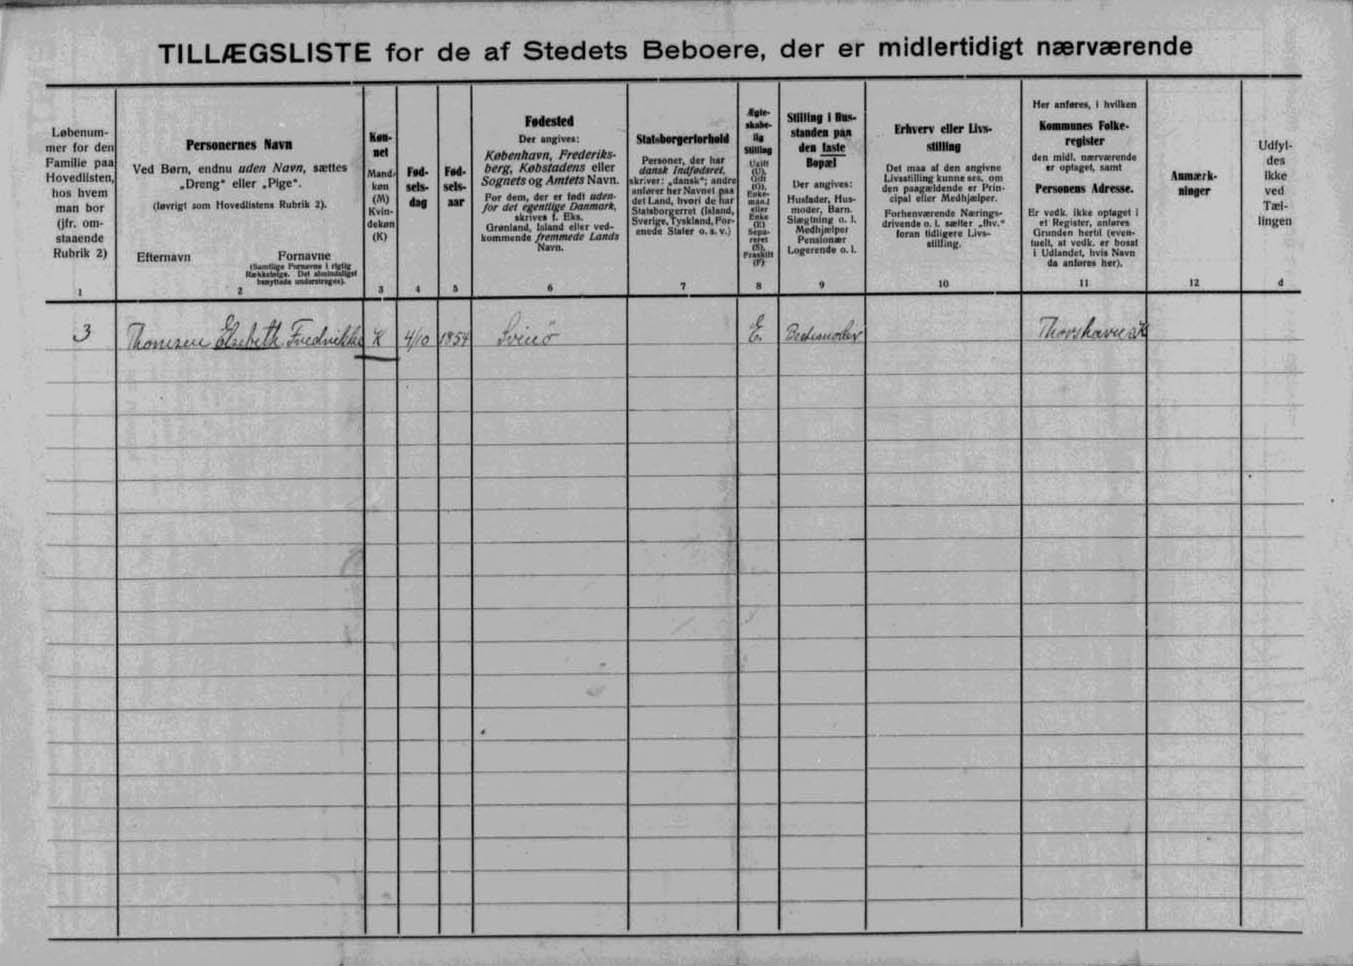 TILLÆGSLISTE for de af Stedets Beboere, der er midlertidigt nærværende
Løbenum-
mer for den
Familie paa
Hovedlisten,
hos hvem
man bor
(jfr. om-
staaende
Rubrik 2)
1
Personernes Navn
Ved Børn, endnu uden Navn, sættes
„Dreng“ eller „Pige“.
(Iøvrigt som Hovedlistens Rubrik 2).
Efternavn
Fornavne
(Samtlige Fornavne i rigtig
Rækkefølge. Det almindeligst
benyttede understreges).
2
Køn-
net
Mand-
køn
(M)
Kvin-
dekøn
(K)
3
Fød-
sels-
dag
4
Fød-
sels-
aar
5
Fødested
Der angives:
København, Frederiks-
berg, Købstadens eller
Sognets og Amtets Navn.
For dem, der er født uden-
for det egentlige Danmark,
skrives f. Eks.
Grønland, Island eller ved-
kommende fremmede Lands
Navn.
6
Statsborgerforhold
Personer, der har
dansk Indfødsret,
skriver: „dansk“; andre
anfører her Navnet paa
det Land, hvori de har
Statsborgerret (Island,
Sverige, Tyskland, For-
enede Stater o. s. v.)
7
Ægte-
skabe-
lig
Stilling
Ugift
(U),
Gift
(G),
Enke-
mand
eller
Enke
(E)
Sepa-
reret
(S),
Fraskilt
(F)
8
Stilling i Hus-
standen paa
den faste
Bopæl
Der angives:
Husfader, Hus-
moder, Barn,
Slægtning o. l.
Medhjælper
Pensionær
Logerende o. l.
9
Erhverv eller Livs-
stilling
Det maa af den angivne
Livsstilling kunne ses, om
den paagældende er Prin-
cipal eller Medhjælper.
Forhenværende Nærings-
drivende o. l. sætter „fhv.“
foran tidligere Livs-
stilling.
10
Her anføres, i hvilken
Kommunes Folke-
register
den midl. nærværende
er optaget, samt
Personens Adresse.
Er vedk. ikke optaget i
et Register, anføres
Grunden hertil (even-
tuelt, at vedk. er bosat
i Udlandet, hvis Navn
da anføres her).
11
Anmærk-
ninger
12
Udfyl-
des
ikke
ved
Tæl-
lingen
d
3 Thomsen Elsebeth Fredrikke K 4/10 1854 Svinö E. Bedstemoder Thorshavn